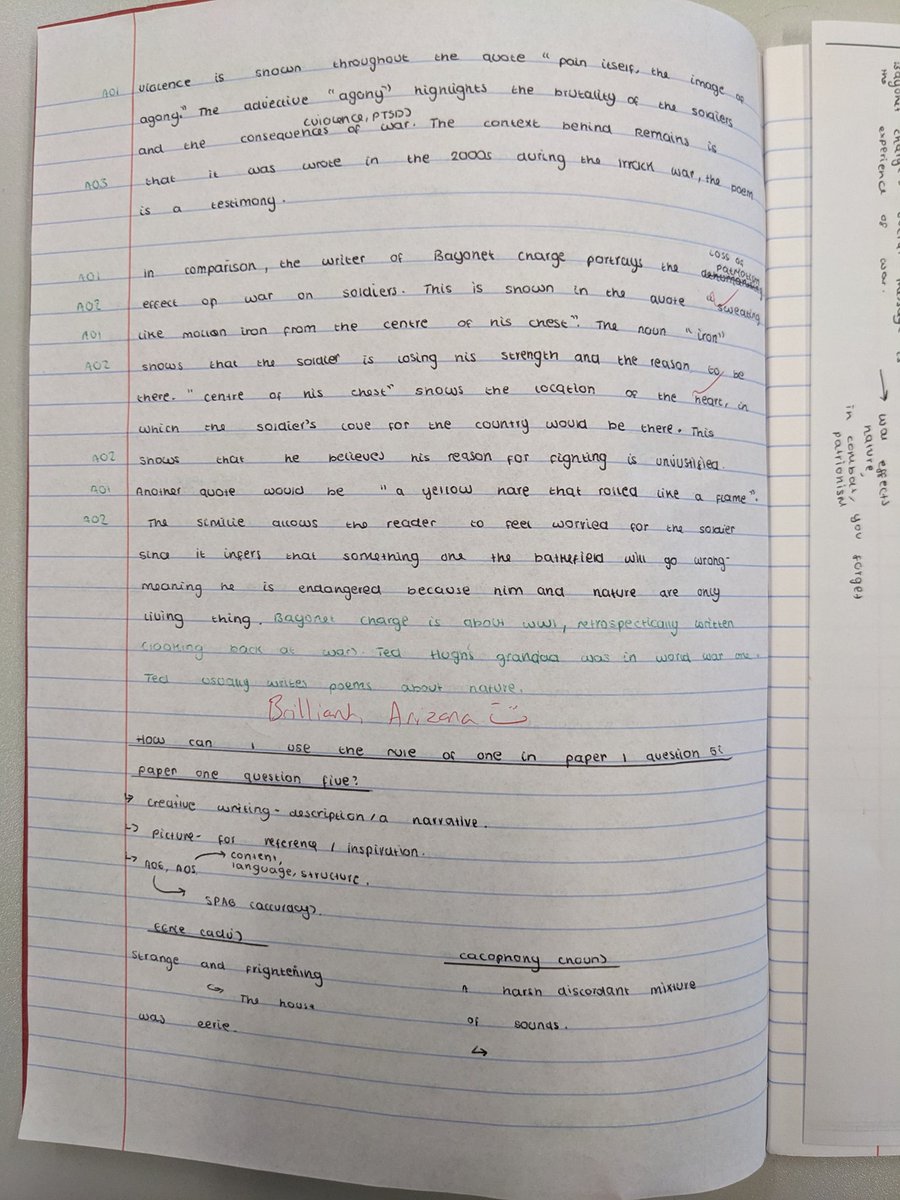 AO1 violence is shown throughout the quote " pain itself, the image of
agony." The adjective "agony" highlights the brutality of the soldiers
(violence, PTSD)
and the consequences of war. The context behind Remains is
AO3 that it was wrote in the 2000s during the Irrack war, the poem
is a testimony.
loss of
patriotism
AO1 in comparison, the writer of Bayonet charge portrays the dehumanising
AO2 effect of war on soldiers. This is shown in the quote " sweating
AO1 like molten iron from the centre of his chest". The noun "iron"
AO2 shows that the soldier is losing his strength and the reason to be
there. " centre of his chest" shows the location of the heart, in
which the soldier's love for the country would be there. This
AO2 shows that he believes his reason for fighting is unjustified.
AO1 Another quote would be " a yellow hare that rolled like a flame".
AO2 The similie allows the reader to feel worried for the soldier
it infers that something one the battlefield will go wrong-
meaning he is endangered because him and nature are only
living thing. Bayonet charge is about WW1, retrospectically written
(looking back at war). Ted Hughs grandad was in world war one.
Ted usually writes poems about nature.
Brilliant, Arizona
How can I use the rule of one in paper 1 question 5?
paper one question five?
↳ creative writing - description / a narrative.
↳ picture - for reference / inspiration.
↳ AO6, AO5 → content,
language, structure.
↳ SPAG (accuracy).
eerie (adj)
strange and frightening
↳ The house
was eerie.
cacophony (noun)
A harsh discordant mixture
of sounds.
↳
experience of war.
→ war effects
nature,
in combat, you forget
patrionism